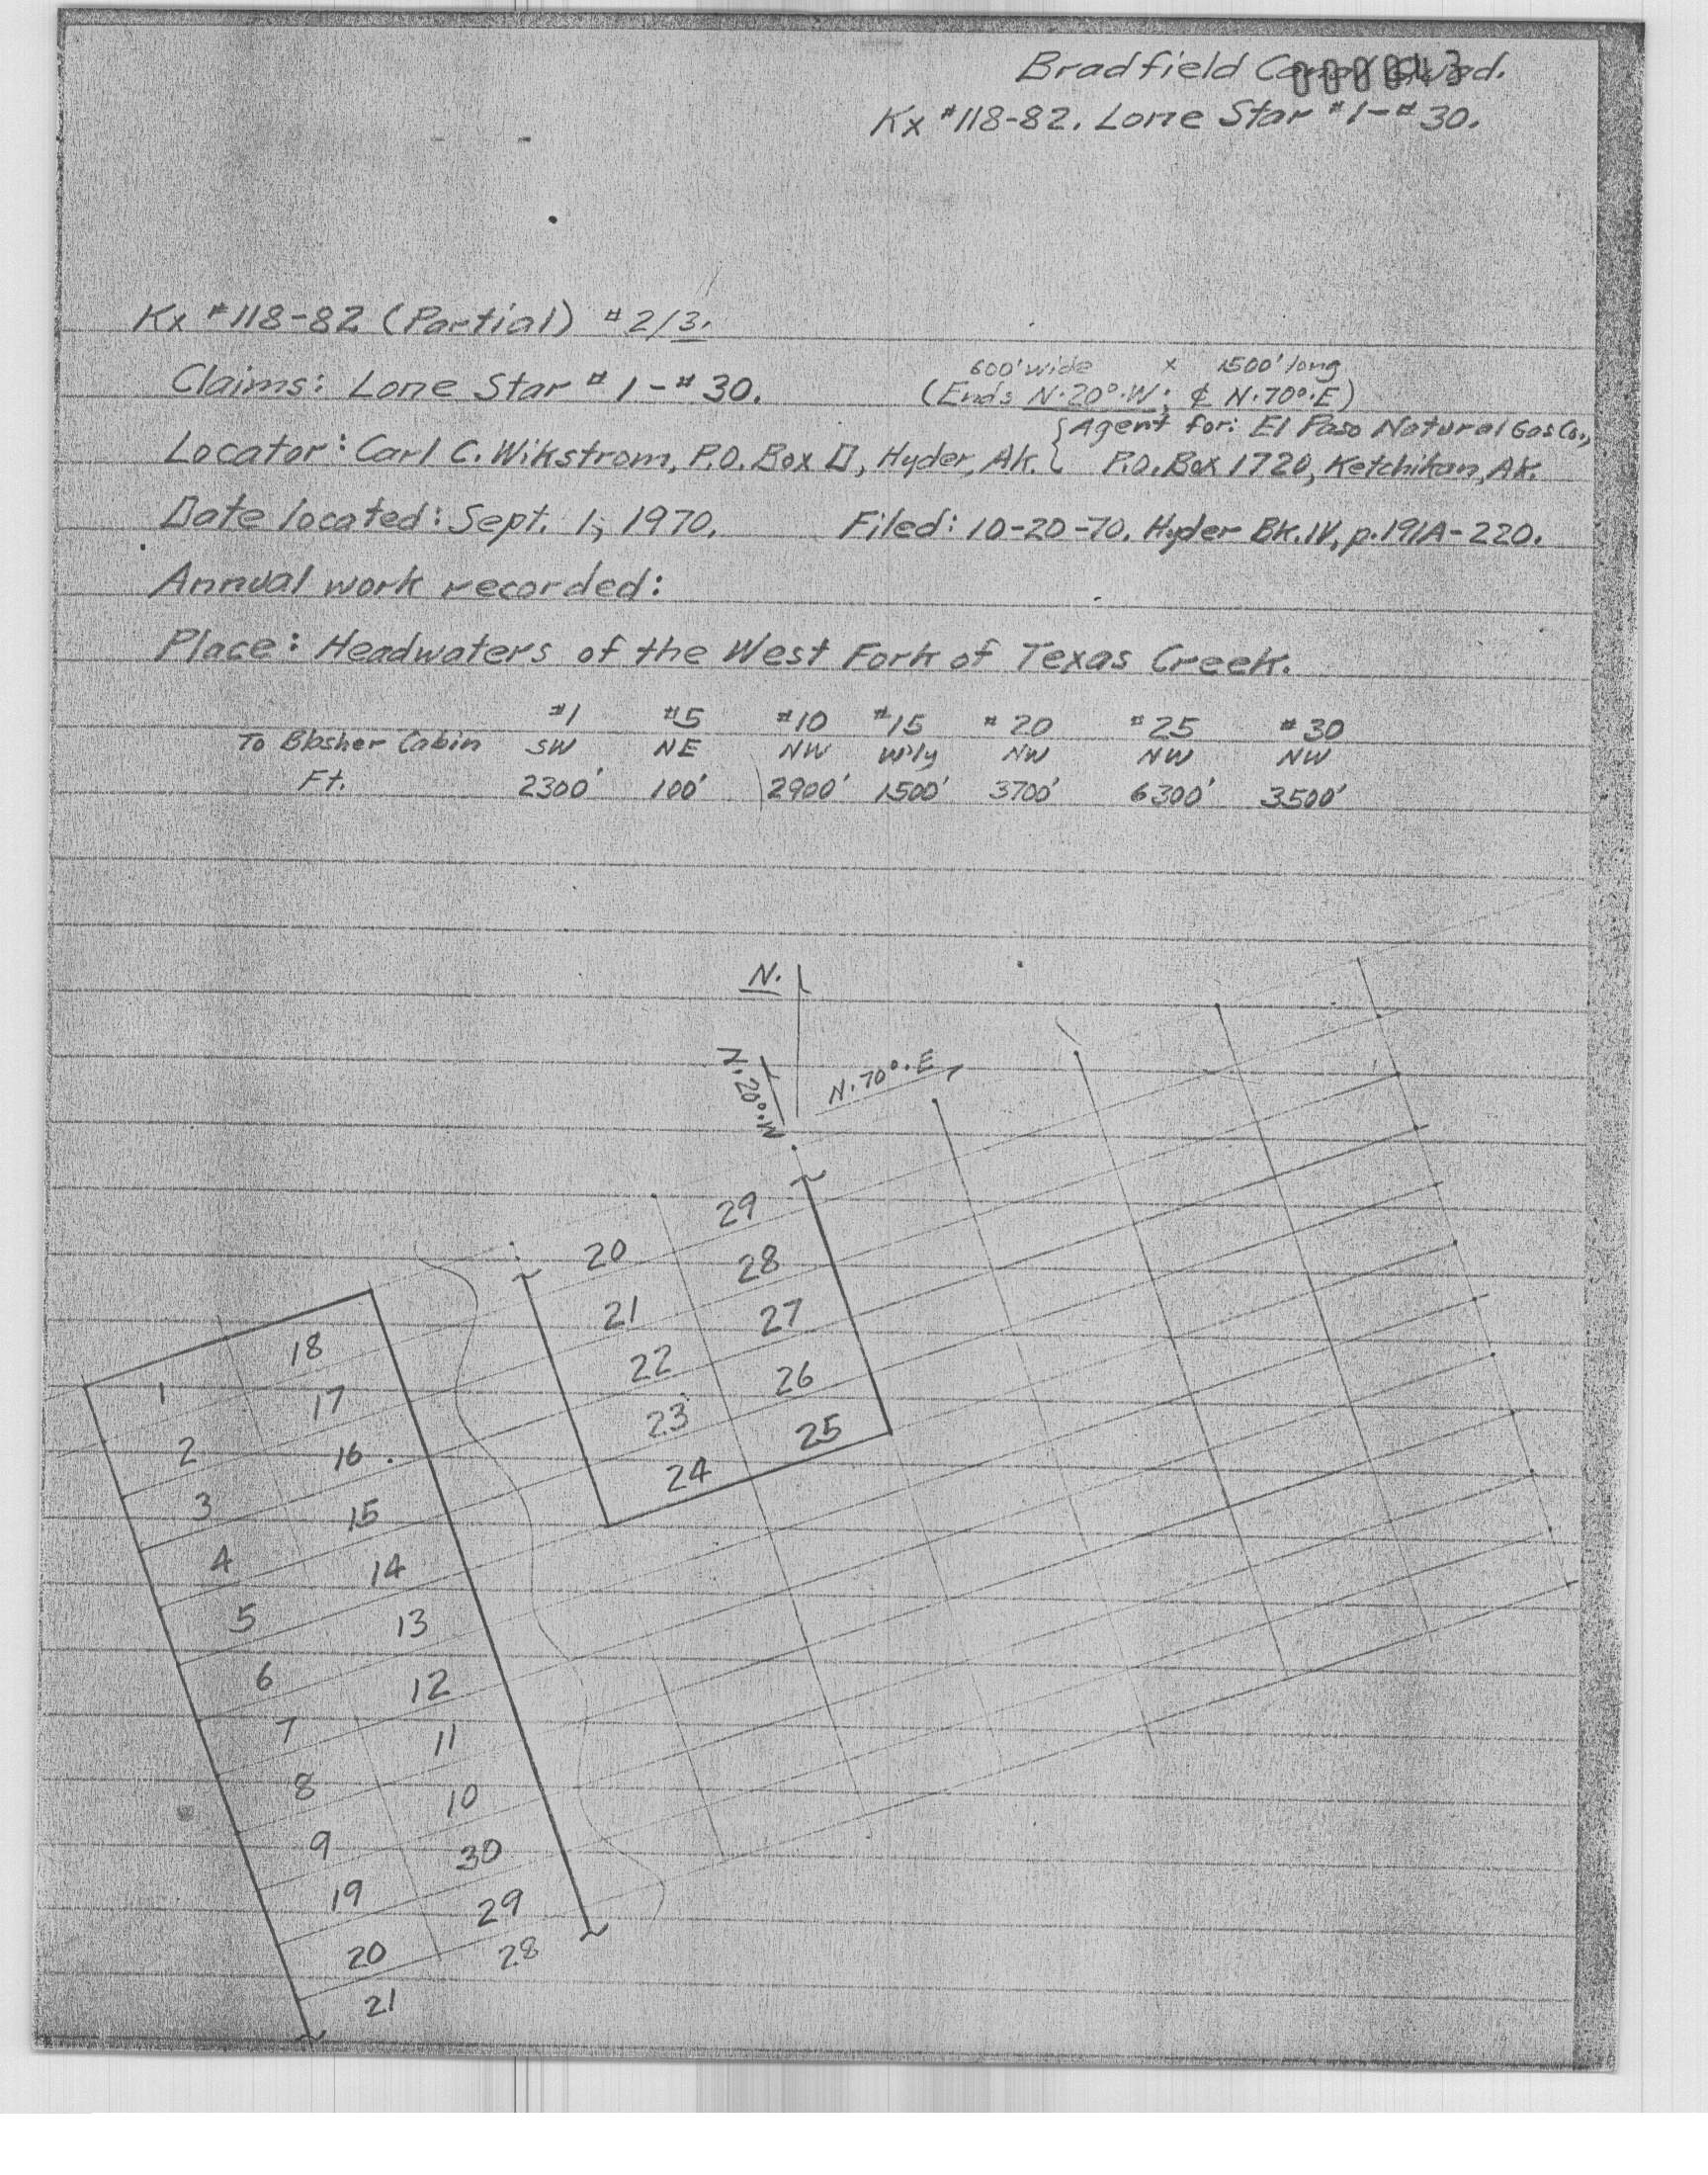 Bradfield Canal Quad.
000043
Kx #118-82. Lone Star #1-#30.
Kx #118-82 (Partial) #2/3.
600' wide x 1500' long
Claims: Lone Star #1-#30. (Ends N.20°.W; ℄ N.70°.E)
{Agent for: El Paso Natural Gas Co.,
Locator: Carl C. Wikstrom, P.O. Box D, Hyder, Ak. { P.O. Box 1720, Ketchikan, Ak.
Date located: Sept. 1, 1970. Filed: 10-20-70. Hyder Bk. IV, p. 191A-220.
Annual work recorded:
Place: Headwaters of the West Fork of Texas Creek.
#1 #5 #10 #15 #20 #25 #30
To Blasher Cabin SW NE NW W'ly NW NW NW
Ft. 2300' 100' 2900' 1500' 3700' 6300' 3500'
N.
N.20°.W
N.70°.E
20 29
21 28
22 27
23 26
24 25
1 18
2 17
3 16
4 15
5 14
6 13
7 12
8 11
9 10
19 30
20 29
21 28